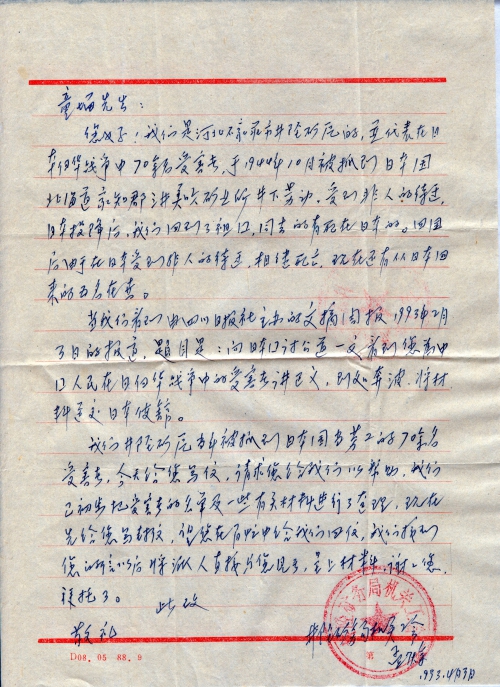 童增先生：
您好！我们是河北石家庄市井陉矿区的，是代表在日
本侵华战争中70余名受害者，于1944年10月被抓到日本国
北海道空知郡 井下劳动，受到非人的待遇，
日本投降后，我们回到了祖国，同去的有死在日本的。回国
后由于在日本受到非人的待遇，相继死亡，现在还有从日本回
来的五名在世。
当我们看到由四川日报社主办的文摘周报1993年2月
3日的报道，题目是：向日本讨公道一文看到您为中
国人民在日侵华战争中的受害者讲正义，到处奔波，将材
料送交日本使馆。
我们井陉矿区当年被抓到日本国当劳工的70余名
受害者，今天给您写信，请求您给我们以帮助，我们
已初步把受害者的名单及一些有关材料进行了整理，现在
先给您写封信，望您在百忙中给我们回信，我们接到
您的 以后将派人直接与您见面，呈上材料，谢谢您，
拜托了。
此致
敬礼
井陉矿务局
局机关
第
1993.4月3日
D08．05 88．9